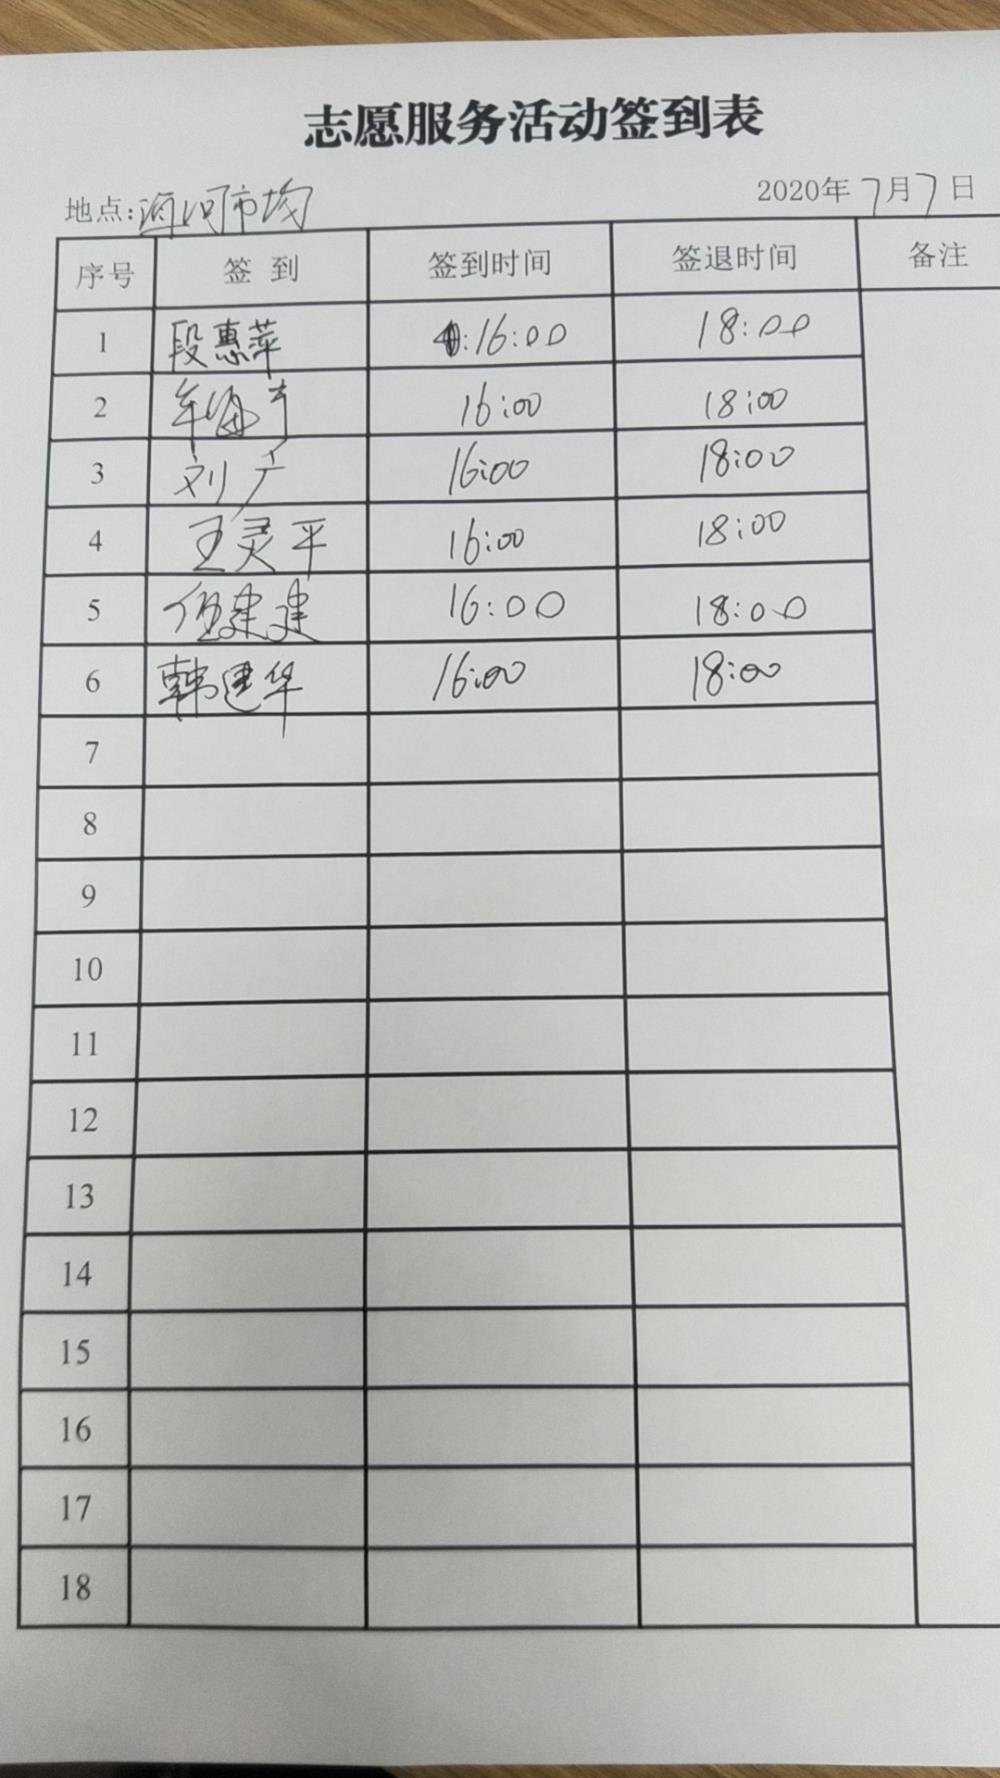 志愿服务活动签到表
地点:海河市场
2020年7月7日
序号 签到 签到时间 签退时间 备注
1 段惠萍 16:00 18:00
2 16:00 18:00
3 刘广 16:00 18:00
4 王灵平 16:00 18:00
5 伍建建 16:00 18:00
6 韩建华 16:00 18:00
7
8
9
10
11
12
13
14
15
16
17
18